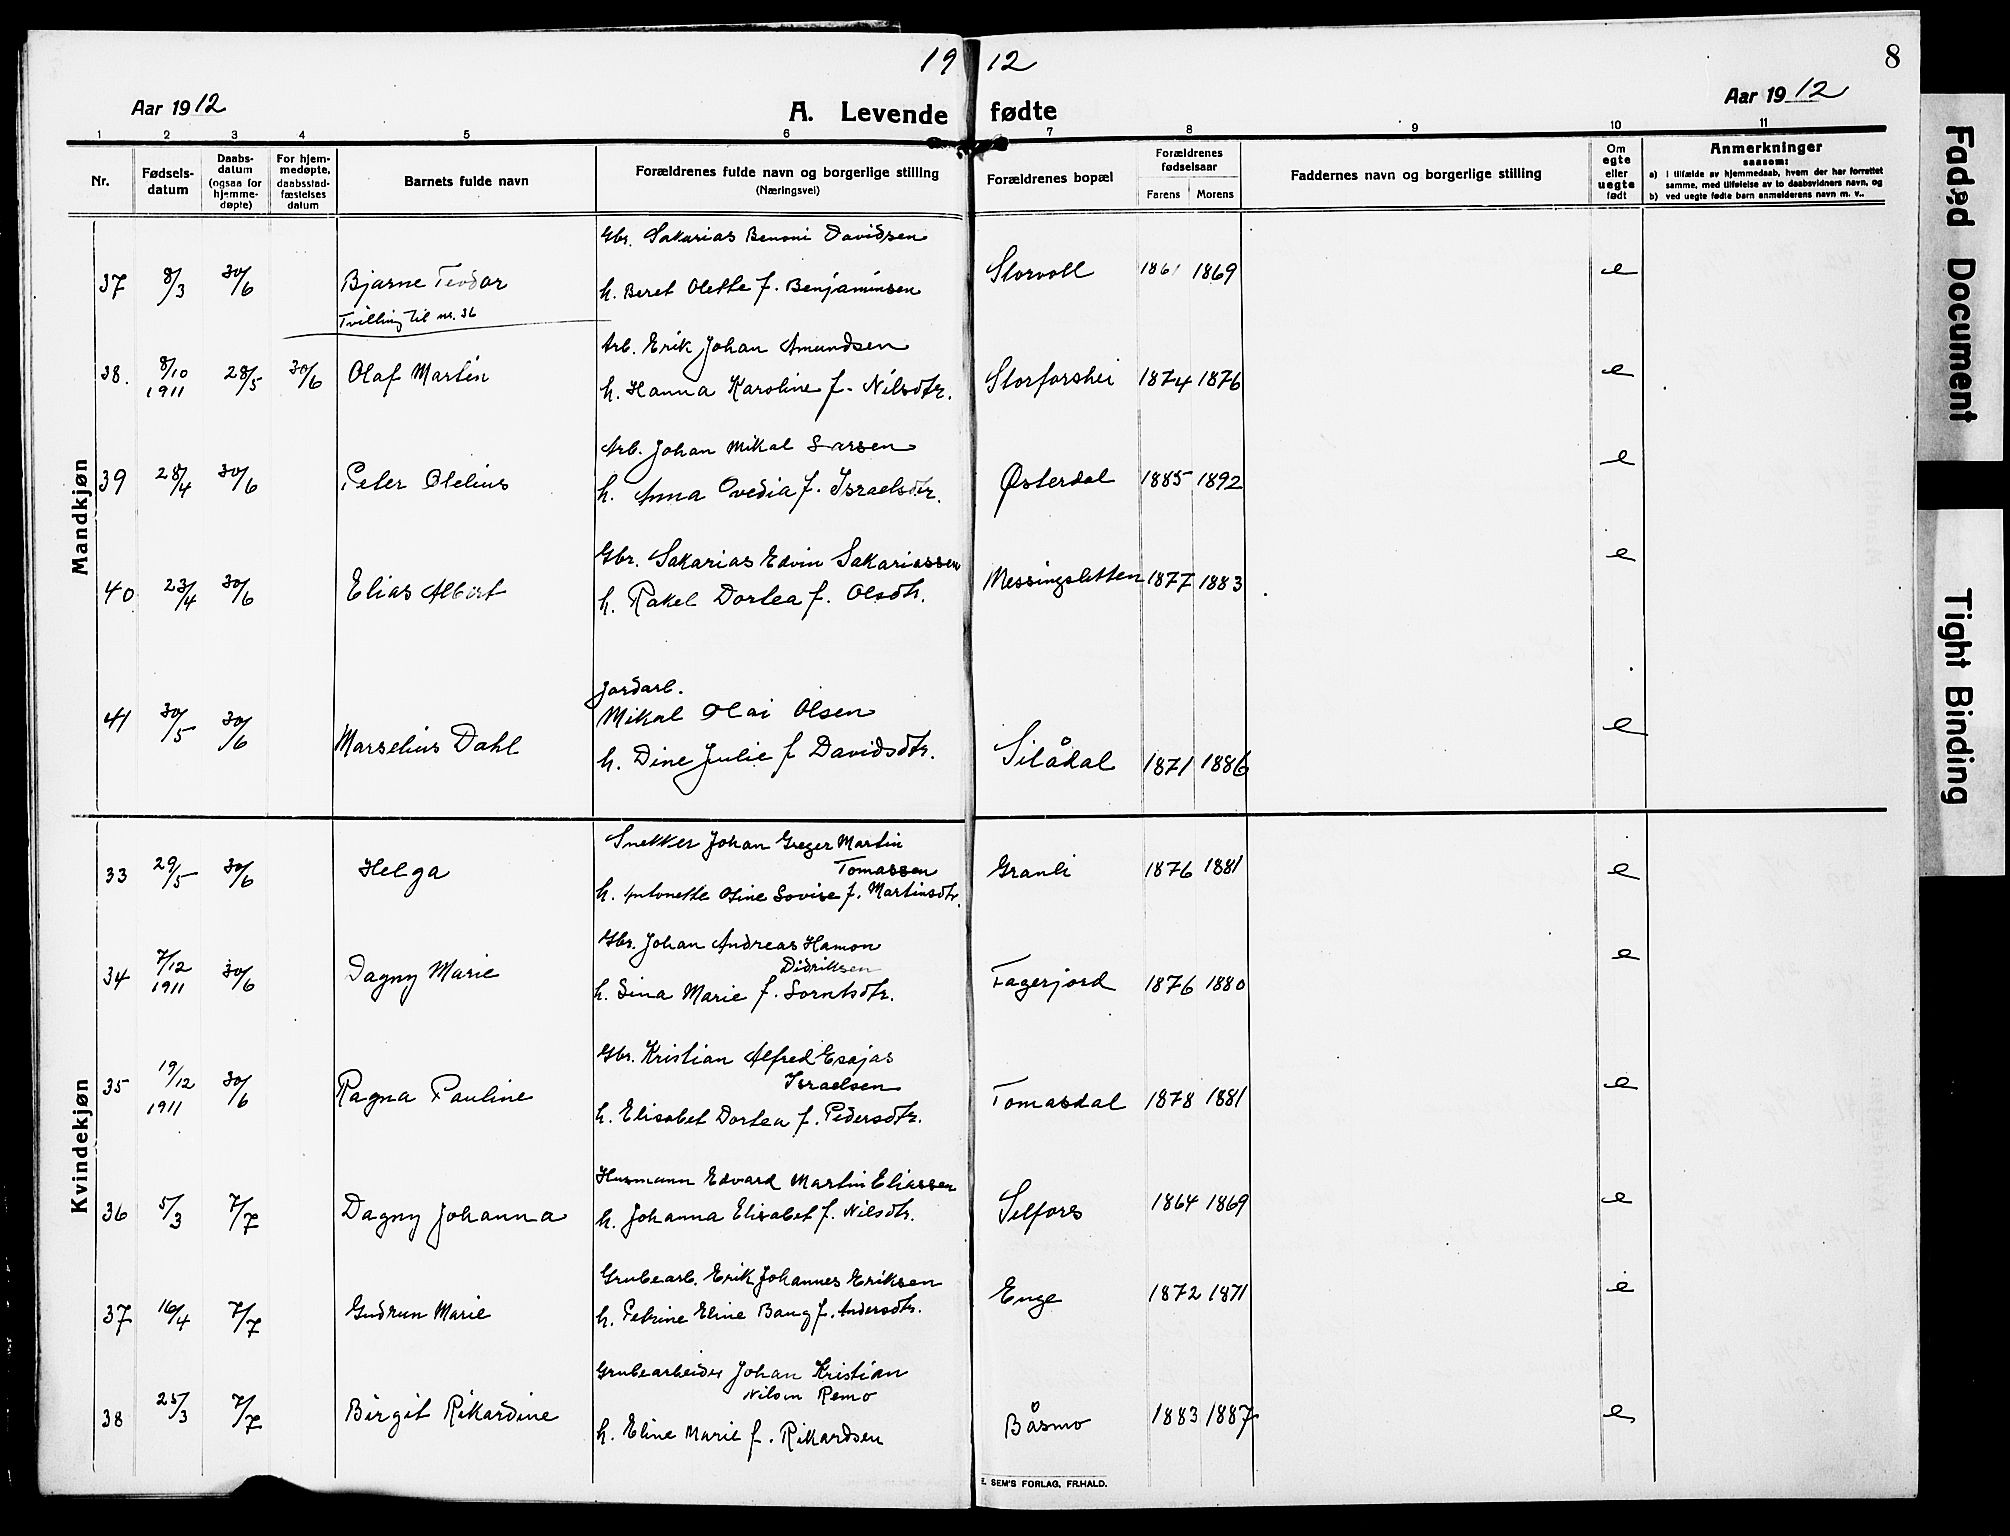 19 12
8
Aar 1912
A. Levende fødte
Aar 1912
1 2 3 4 5 6 7 8 9 10 11
Nr.
Fødsels-
datum
Daabs-
datum
(ogsaa for
hjemme-
døpte)
For hjem-
medøpte,
daabsstad-
fæstelses
datum
Barnets fulde navn
Forældrenes fulde navn og borgerlige stilling
(Næringsvei)
Forældrenes bopæl
Forældrenes
fødselsaar
Farens Morens
Faddernes navn og borgerlige stilling
Om
egte
eller
uegte
født
Anmerkninger
saasom:
a) i tilfælde av hjemmedaab, hvem der har forrettet
samme, med tilføielse av to daabsvidners navn, og
b) ved uegte fødte barn anmelderens navn m. v..
Mandkjøn
Gbr. Sakarias Benoni Davidsen
37 8/3 30/6 Bjarne Teodor h. Beret Olette f. Benjaminsen Storvoll 1861 1869 e
Tvilling til nr. 36
Arb. Erik Johan Amundsen
38. 8/10 28/5 30/6 Olaf Martin h. Hanna Karoline f. Nilsdtr. Storforshei 1874 1876 e
1911
Arb. Johan Mikal Larsen
39 28/4 30/6 Peter Olelius h. Anna Ovedia f. Israelsdtr. Østerdal 1885 1892 e
Gbr. Sakarias Edvin Sakariassen
40 23/4 30/6 Elias Albert h. Rakel Dortea f. Olsdtr. Messingsletten 1877 1883 e
Jordarb.
Mikal Olai Olsen
41 30/5 30/6 Marselius Dahl h. Dine Julie f Davidsdtr. Silådal 1871 1886 e
Kvindekjøn
Snekker Johan Greger Martin
Tomassen
33 29/5 30/6 Helga h. Antonette Oline Lovise f. Martinsdtr. Granli 1876 1881 e
Gbr. Johan Andreas Hamon
Didriksen
34 7/12 30/6 Dagny Marie h. Sina Marie f. Sorntsdtr. Fagerjord 1876 1880 e
1911
Gbr. Kristian Alfred Esajas
Israelsen
35 19/12 30/6 Ragna Pauline h. Elisabet Dortea f. Pedersdtr. Tomasdal 1878 1881 e
1911
Husmann Edvard Martin Eliassen
36 5/3 7/7 Dagny Johanna h. Johanna Elisabet f. Nilsdtr. Selfors 1864 1869 e
Grubearb. Erik Johannes Eriksen
37 16/4 7/7 Gudrun Marie h. Petrine Eline Baug f. Andersdtr. Enge 1872 1871 e
Grubearbeider Johan Kristian
Nilsen Remo
38 25/3 7/7 Birgit Rikardine h. Eline Marie f. Rikardsen Båsmo 1883 1887 e
E. SEM'S FORLAG, FR.HALD.
Faded Document
Tight Binding